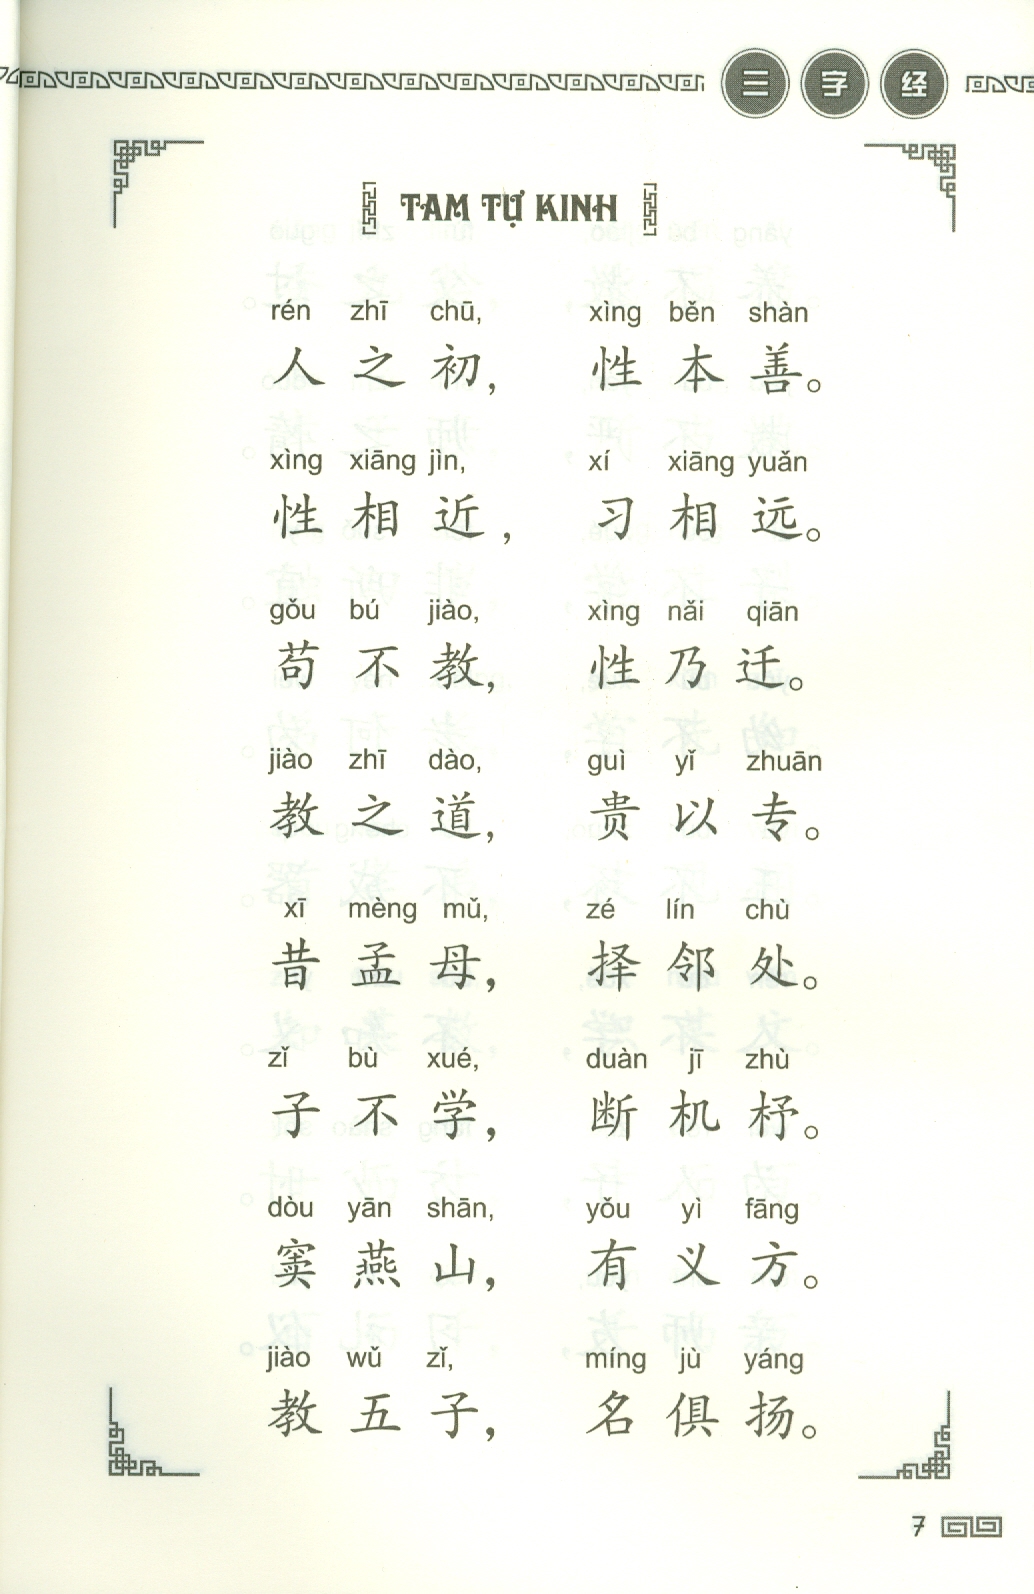 三字经
TAM TỰ KINH
rén zhī chū, xìng běn shàn
人之初，性本善。
xìng xiāng jìn, xí xiāng yuǎn
性相近，习相远。
gǒu bú jiào, xìng nǎi qiān
苟不教，性乃迁。
jiào zhī dào, guì yǐ zhuān
教之道，贵以专。
xī mèng mǔ, zé lín chù
昔孟母，择邻处。
zǐ bù xué, duàn jī zhù
子不学，断机杼。
dòu yān shān, yǒu yì fāng
窦燕山，有义方。
jiào wǔ zǐ, míng jù yáng
教五子，名俱扬。
7